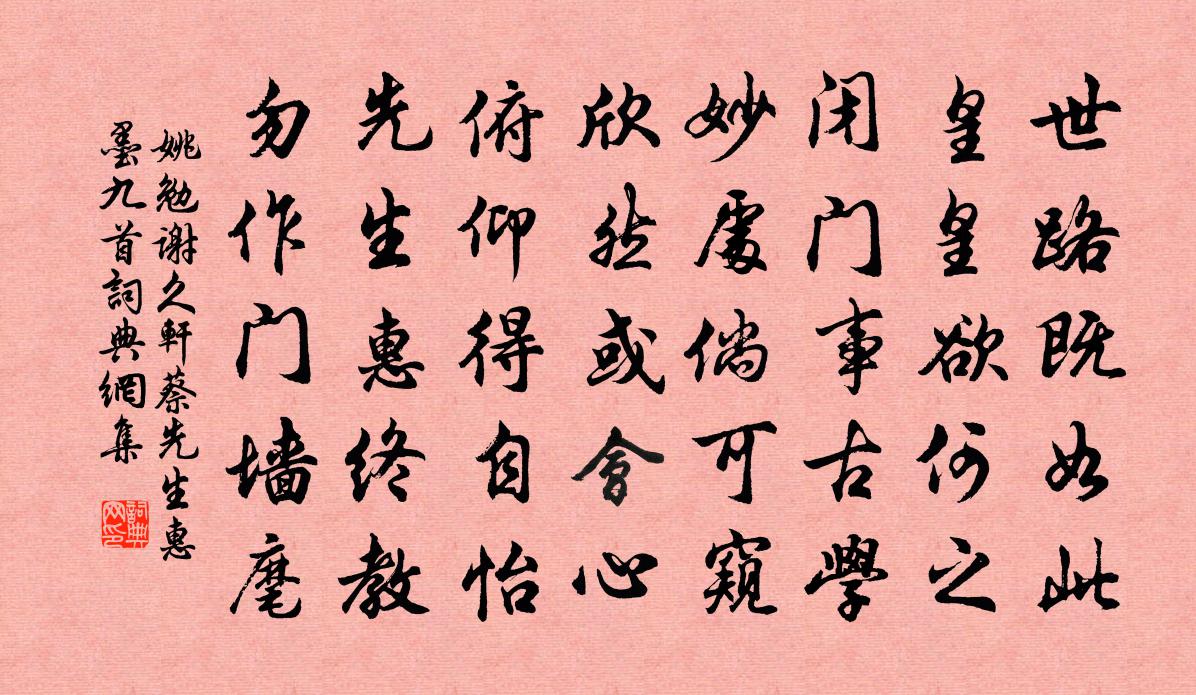 世路既如此
皇皇欲何之
闭门事古学
妙處倘可窺
欣然或會心
俯仰得自怡
先生惠终教
勿作门墙麾
姚勉谢久軒蔡先生惠
墨九首詞典網集
詞典網印